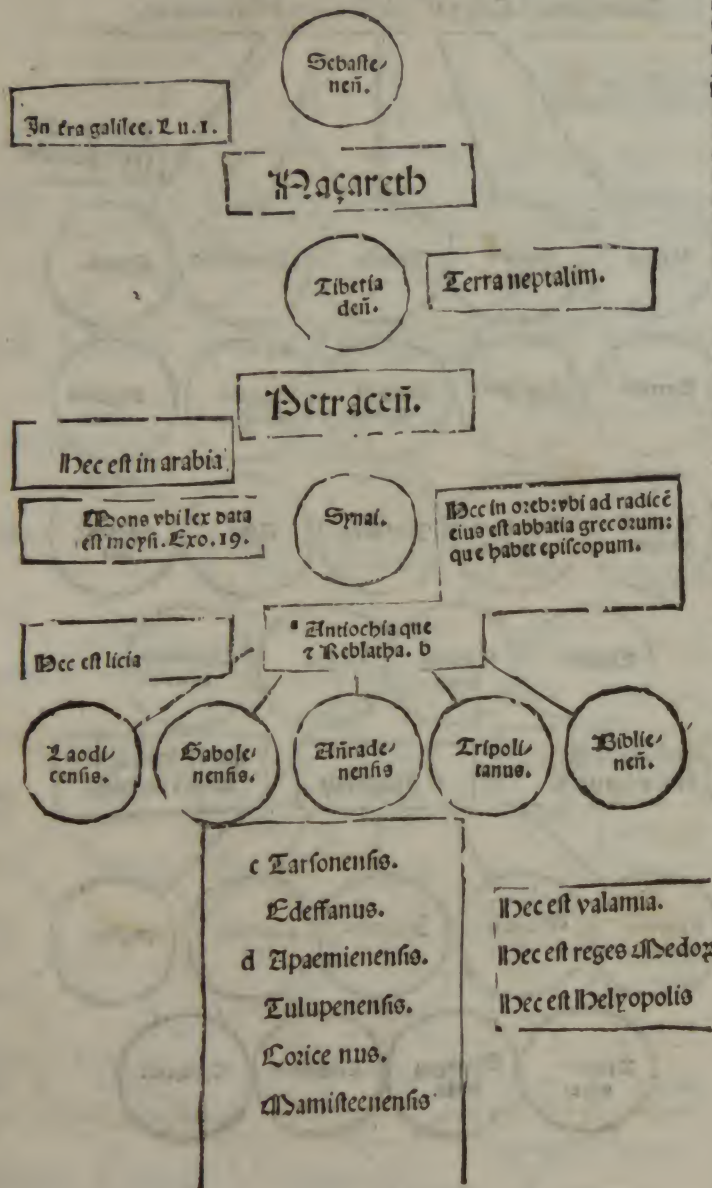 Sebaste⸗
neñ.
In t̃ra galilee. Lu.1.
Naçareth
Tiberia
deñ.
Terra neptalim.
Petraceñ.
Hec est in arabia
Mons vbi lex data
est moysi. Exo.19.
Synai.
Hec in oreb: vbi ad radicē
eius est abbatia grecorum:
que habet episcopum.
Hec est licia
a Antiochia que
⁊ Reblatha. b
Laodi⸗
censis.
Gabole⸗
nensis.
Añrade⸗
nensis
Tripoli⸗
tanus.
Biblie⸗
neñ.
c Tarsonensis.
Edessanus.
d Apaemienensis.
Tulupenensis.
Corice nus.
Mamisteenensis
Hec est valamia.
Hec est reges Medoꝝ
Hec est Helyopolis